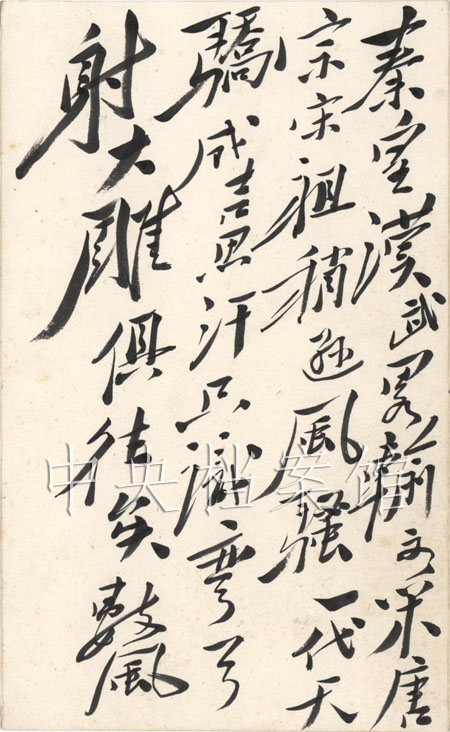 秦皇漢武畧輸文采唐
宗宋祖稍逊風騷一代天
驕成吉思汗只識弯弓
射大雕俱往矣數風
中央档案馆